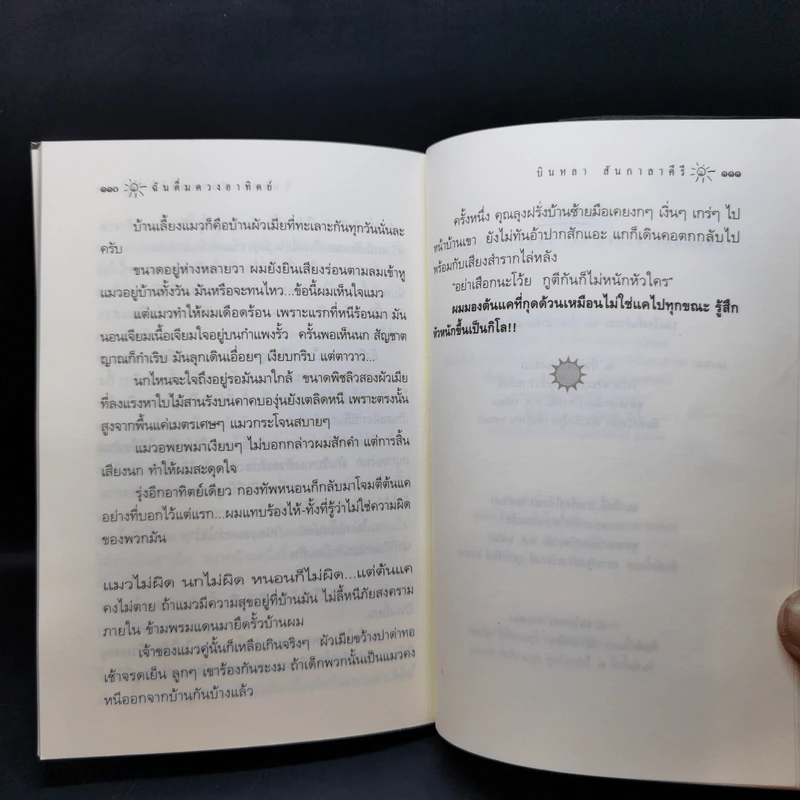 ๑๑๐ ฉันดื่มดวงอาทิตย์
บ้านเลี้ยงแมวก็คือบ้านผัวเมียที่ทะเลาะกันทุกวันนั่นละ
ครับ
ขนาดอยู่ห่างหลายวา ผมยังยินเสียงร่อนตามลมเข้าหู
แมวอยู่บ้านทั้งวัน มันหรือจะทนไหว...ข้อนี้ผมเห็นใจแมว
แต่แมวทำให้ผมเดือดร้อน เพราะแรกที่หนีร้อนมา มัน
นอนเจียมเนื้อเจียมใจอยู่บนกำแพงรั้ว ครั้นพอเห็นนก สัญชาต
ญาณก็กำเริบ มันลุกเดินเอื่อยๆ เงียบกริบ แต่ตาวาว...
นกไหนจะใจถึงอยู่รอมันมาใกล้ ขนาดพิชลิวสองผัวเมีย
ที่ลงแรงหาใบไม้สานรังบนคาคบองุ่นยังเตลิดหนี เพราะตรงนั้น
สูงจากพื้นแค่เมตรเศษๆ แมวกระโจนสบายๆ
แมวอพยพมาเงียบๆ ไม่บอกกล่าวผมสักคำ แต่การสิ้น
เสียงนก ทำให้ผมสะดุดใจ
รุ่งอีกอาทิตย์เดียว กองทัพหนอนก็กลับมาโจมตีต้นแค
อย่างที่บอกไว้แต่แรก...ผมแทบร้องไห้-ทั้งที่รู้ว่าไม่ใช่ความผิด
ของพวกมัน
แมวไม่ผิด นกไม่ผิด หนอนก็ไม่ผิด...แต่ต้นแค
คงไม่ตาย ถ้าแมวมีความสุขอยู่ที่บ้านมัน ไม่ลี้หนีภัยสงคราม
ภายใน ข้ามพรมแดนมายึดรั้วบ้านผม
เจ้าของแมวคู่นั้นก็เหลือเกินจริงๆ ผัวเมียขว้างปาด่าทอ
เช้าจรดเย็น ลูกๆ เขาร้องกันระงม ถ้าเด็กพวกนั้นเป็นแมวคง
หนีออกจากบ้านกันบ้างแล้ว
บินหลา สันกาลาคีรี ๑๑๑
ครั้งหนึ่ง คุณลุงฝรั่งบ้านซ้ายมือเคยงกๆ เงิ่นๆ เกร่ๆ ไป
หน้าบ้านเขา ยังไม่ทันอ้าปากสักแอะ แกก็เดินคอตกกลับไป
พร้อมกับเสียงสำรากไล่หลัง
“อย่าเสือกนะโว้ย กูตีกันก็ไม่หนักหัวใคร”
ผมมองต้นแคที่กุดด้วนเหมือนไม่ใช่แคไปทุกขณะ รู้สึก
หัวหนักขึ้นเป็นกิโล!!